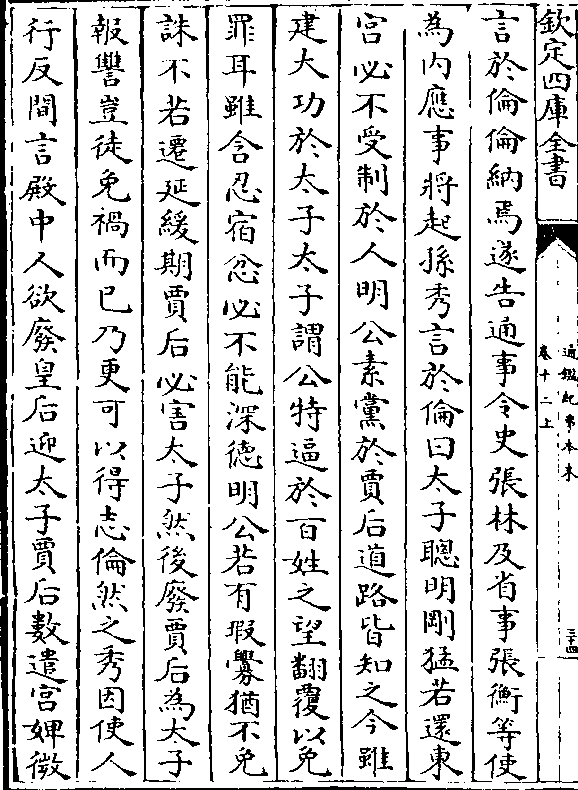 欽定四庫全書
通鑑紀事本末
卷十二上
三十四
言於倫倫納焉遂告通事令史張林及省事張衡等使
為内應事將起孫秀言於倫曰太子聰明剛猛若還東
宫必不受制於人明公素黨於賈后道路皆知之今雖
建大功於太子太子謂公特逼於百姓之望翻覆以免
罪耳雖含忍宿忿必不能深徳明公若有瑕釁猶不免
誅不若遷延緩期賈后必害太子然後廢賈后為太子
報讐豈徒免禍而已乃更可以得志倫然之秀因使人
行反間言殿中人欲廢皇后迎太子賈后數遣宫婢微